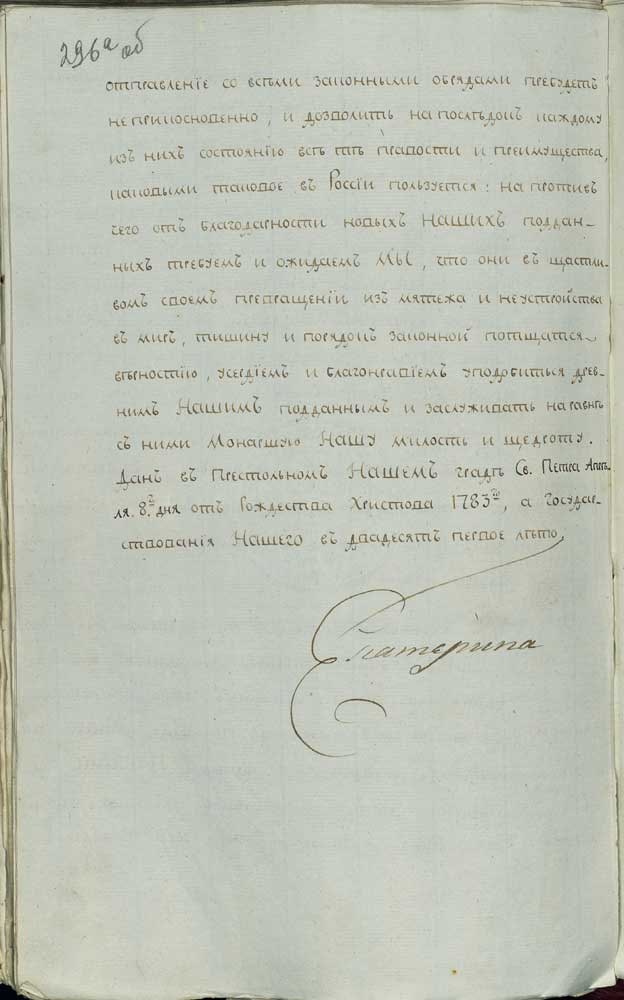 296а об
отправленіе со всѣми законными обрядами пребудетъ
неприкосновенно, и дозволить напослѣдокъ каждому
изъ нихъ состоянію всѣ тѣ правости и преимущества,
каковыми таковое въ Россіи пользуется: на противъ
чего отъ благодарности новыхъ Нашихъ поддан-
ныхъ требуемъ и ожидаемъ МЫ, что они въ щастли-
вомъ своемъ превращеніи изъ мятежа и неустройства
въ миръ, тишину и порядокъ законной потщатся
вѣрностію, усердіемъ и благонравіемъ уподобиться древ-
нимъ Нашимъ подданнымъ и заслуживать наравнѣ
съ ними Монаршую Нашу милость и щедроту.
Данъ въ Престольномъ Нашемъ градѣ Св. Петра Апрѣ-
ля. 8.го дня отъ Рождества Христова 1783го, а государ-
ствованія Нашего въ двадесять первое лѣто,
Екатерина